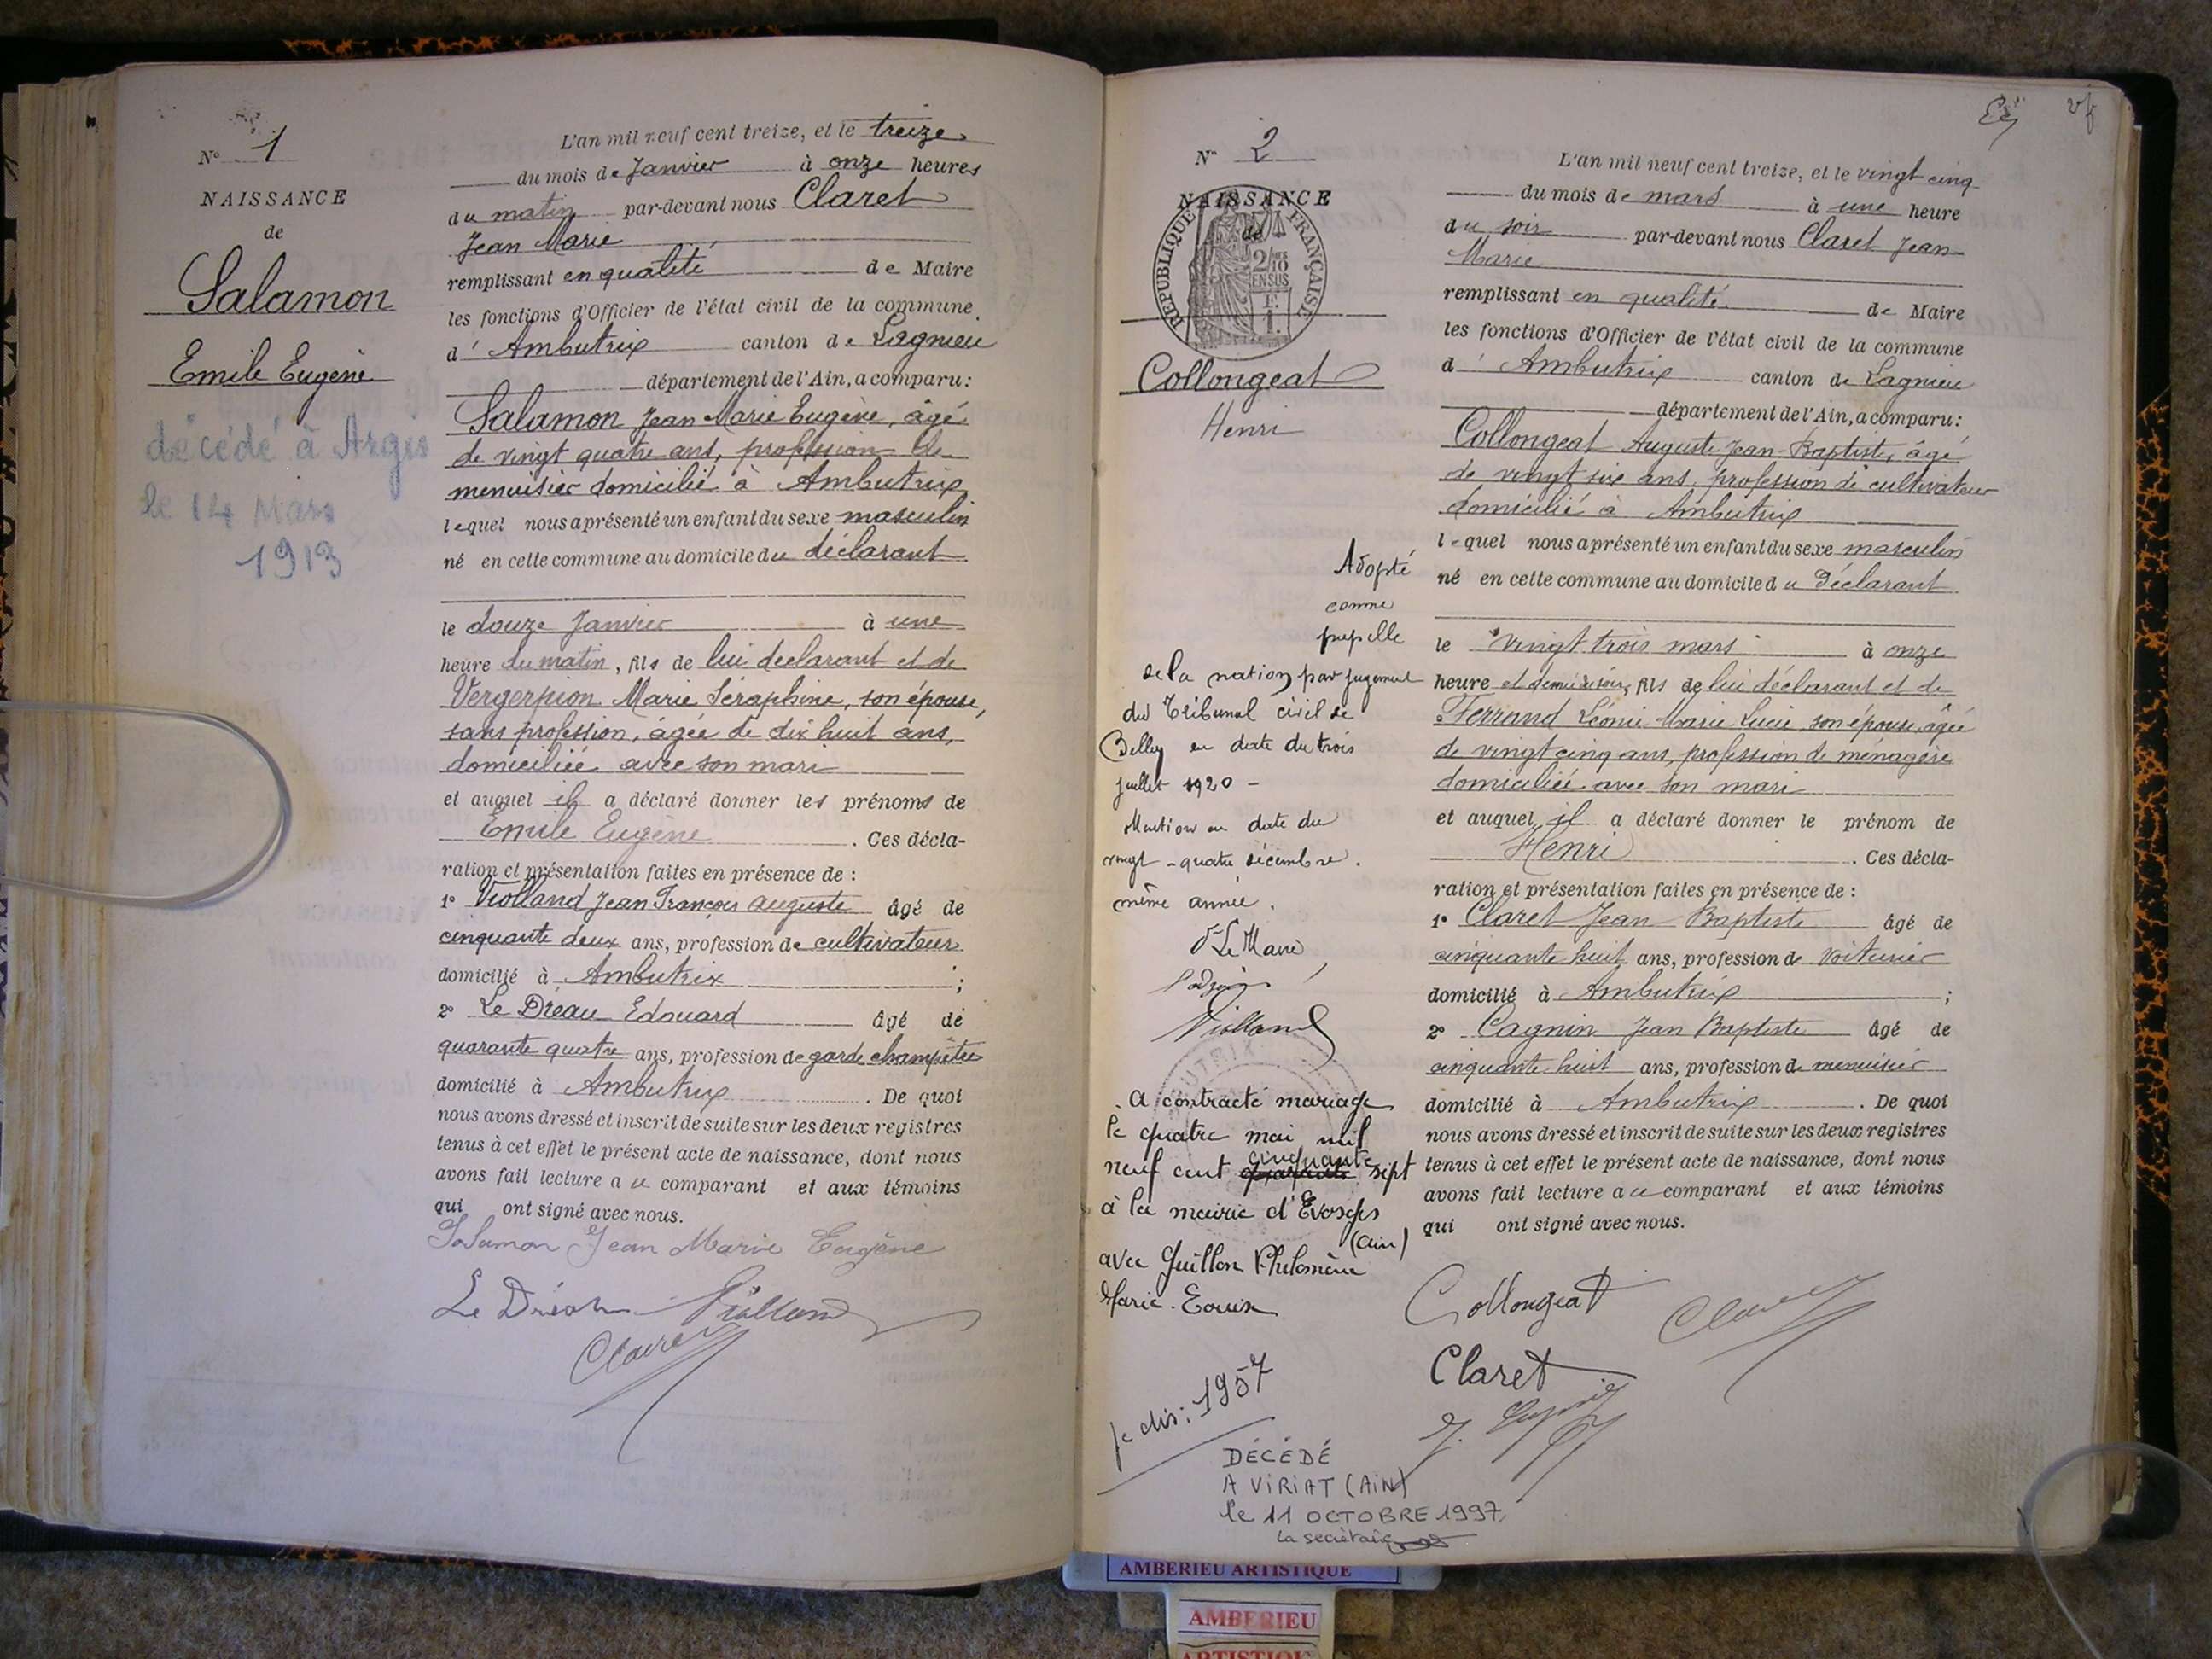 N° 1
NAISSANCE
de
Salamon
Emile Eugène
décédé à Argis
le 14 Mars
1913
L'an mil neuf cent treize, et le treize
du mois de Janvier à onze heures
du matin par-devant nous Claret
Jean Marie
remplissant en qualité de Maire
les fonctions d'Officier de l'état civil de la commune
d' Ambutrix canton de Lagnieu
département de l'Ain, a comparu:
Salamon Jean Marie Eugène, âgé
de vingt quatre ans, profession de
menuisier domicilié à Ambutrix
lequel nous a présenté un enfant du sexe masculin
né en cette commune au domicile du déclarant
le douze Janvier à une
heure du matin, fils de lui déclarant et de
Vergerpion Marie Séraphine, son épouse,
sans profession, âgée de dix huit ans,
domiciliée avec son mari
et auquel il a déclaré donner les prénoms de
Emile Eugène. Ces décla-
ration et présentation faites en présence de :
1° Violland Jean François Auguste âgé de
cinquante deux ans, profession de cultivateur
domicilié à Ambutrix ;
2° Le Dréau Edouard âgé de
quarante quatre ans, profession de garde champêtre
domicilié à Ambutrix. De quoi
nous avons dressé et inscrit de suite sur les deux registres
tenus à cet effet le présent acte de naissance, dont nous
avons fait lecture au comparant et aux témoins
qui ont signé avec nous.
Salamon Jean Marie Eugène
Le Dréau Violland
Claret
N° 2
NAISSANCE
de
RÉPUBLIQUE FRANÇAISE
2/10
EN SUS
Collongeat
Henri
Adopté
comme
pupille
de la nation par jugement
du Tribunal civil de
Belley en date du trois
juillet 1920 -
Mention en date du
vingt-quatre décembre
même année.
Le Maire,
Violland
A contracté mariage
le quatre mai mil
neuf cent quarante cinquante sept
à la mairie d'Evosges
(Ain)
avec Guillon Philomène
Marie-Louise
1957
DÉCÉDÉ
A VIRIAT (AIN)
le 11 OCTOBRE 1997,
La secrétaire
L'an mil neuf cent treize, et le vingt cinq
du mois de mars à une heure
du soir par-devant nous Claret Jean
Marie
remplissant en qualité de Maire
les fonctions d'Officier de l'état civil de la commune
d' Ambutrix canton de Lagnieu
département de l'Ain, a comparu:
Collongeat Auguste Jean-Baptiste, âgé
de vingt six ans, profession de cultivateur
domicilié à Ambutrix
lequel nous a présenté un enfant du sexe masculin
né en cette commune au domicile du déclarant
le vingt trois mars à onze
heure et demie du soir, fils de lui déclarant et de
Ferrand Léonie Marie Lucie son épouse, âgée
de vingt cinq ans, profession de ménagère
domiciliée avec son mari
et auquel il a déclaré donner le prénom de
Henri. Ces décla-
ration et présentation faites en présence de :
1° Claret Jean Baptiste âgé de
cinquante huit ans, profession de voiturier
domicilié à Ambutrix ;
2° Cagnin Jean Baptiste âgé de
cinquante-huit ans, profession de menuisier
domicilié à Ambutrix. De quoi
nous avons dressé et inscrit de suite sur les deux registres
tenus à cet effet le présent acte de naissance, dont nous
avons fait lecture au comparant et aux témoins
qui ont signé avec nous.
Collongeat Claret
Claret
AMBERIEU ARTISTIQUE
AMBERIEU
ARTISTIQUE